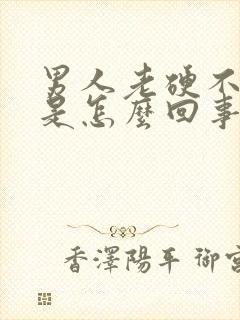 男人老硬不
是怎麼回事
香澤陽平 御宮